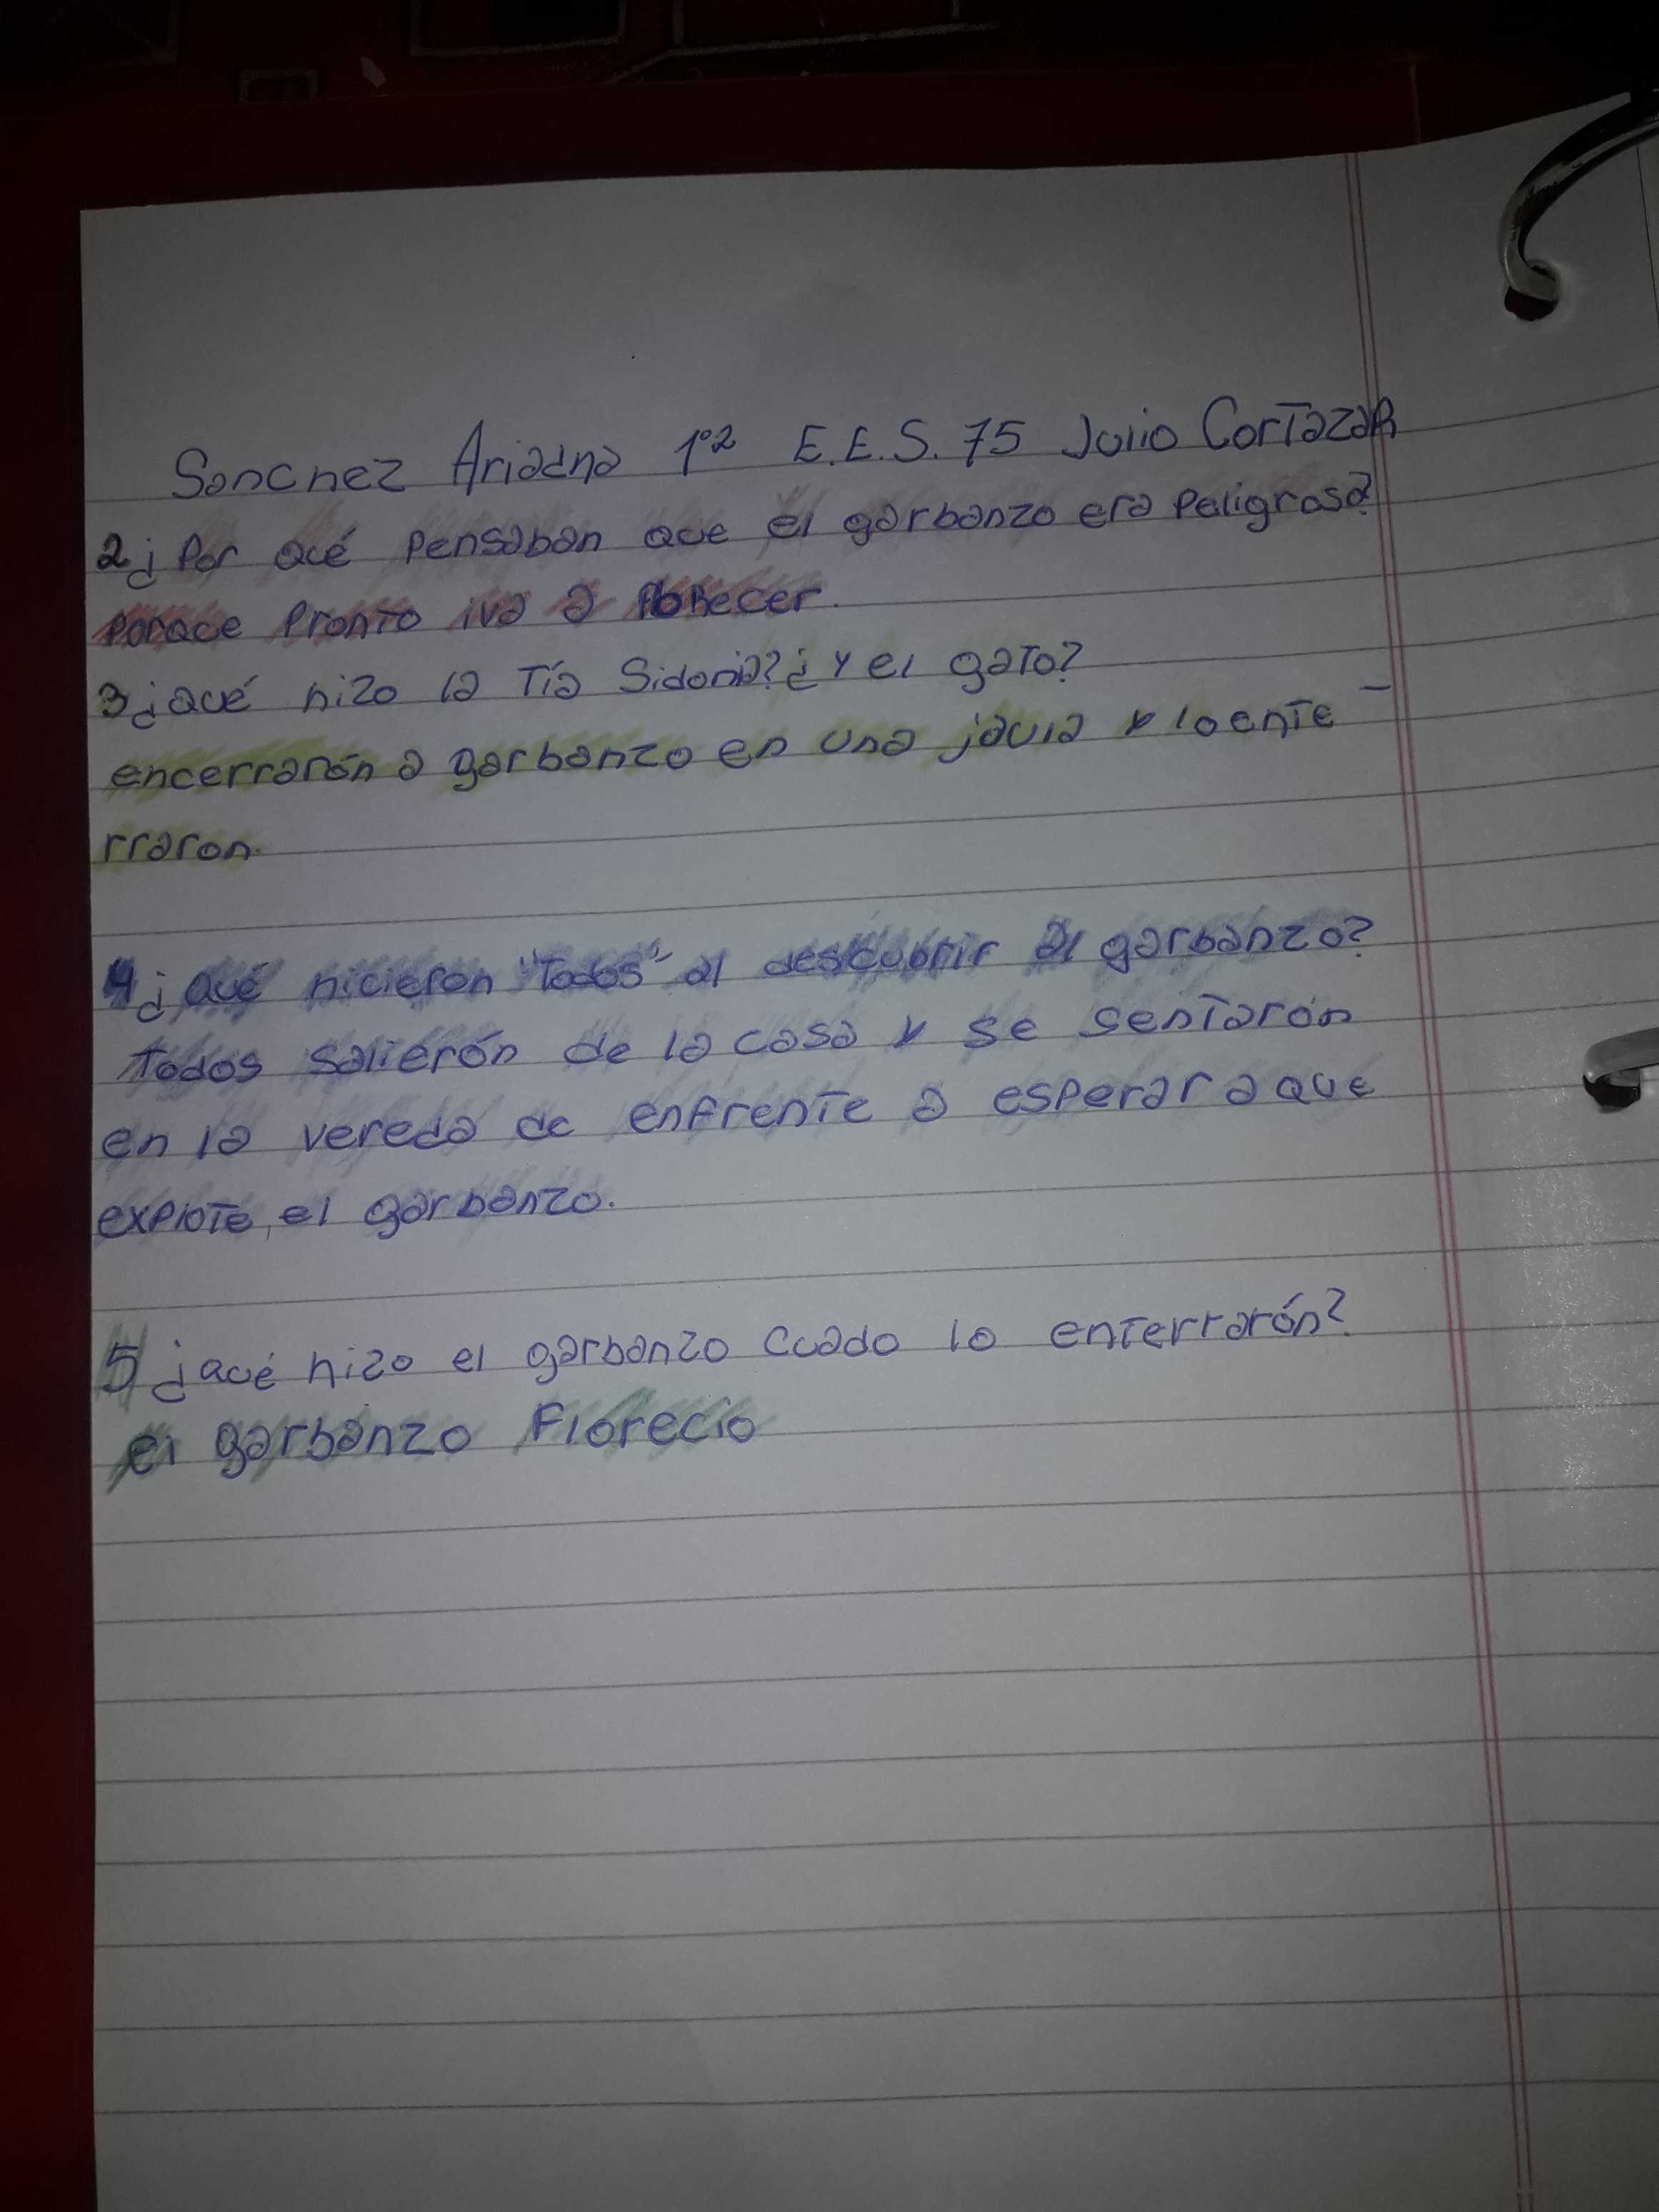 Sanchez Ariadna 1º2 E.E.S. 75 Julio CorTazaR
2¿Por qué Pensaban que el garbanzo era Peligroso?
Porque Pronto iva a floRecer.
3¿qué hizo la Tía Sidonia?¿Y el gaTo?
encerrarón a garbanzo en una jaula y lo enTe-
rraron.
4¿Qué hicieron "Todos" al descubrir al garbanzo?
Todos salierón de la casa y se senTarón
en la vereda de enfrenTe a esperar a que
exploTe, el garbanzo.
5¿qué hizo el garbanzo Cuado lo enTerrarón?
el garbanzo Florecio